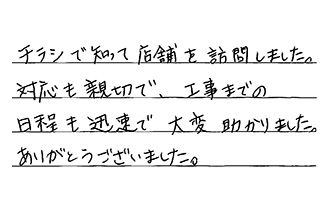 チラシで知って店舗を訪問しました。
対応も親切で、工事までの
日程も迅速で大変助かりました。
ありがとうございました。